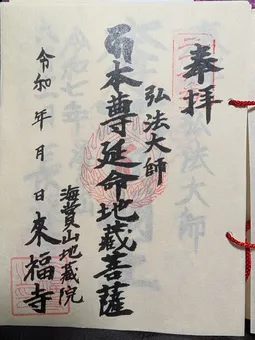 奉拝
弘法大師
本尊延命地蔵菩薩
海賞山地蔵院
来福寺
令和 年 月 日